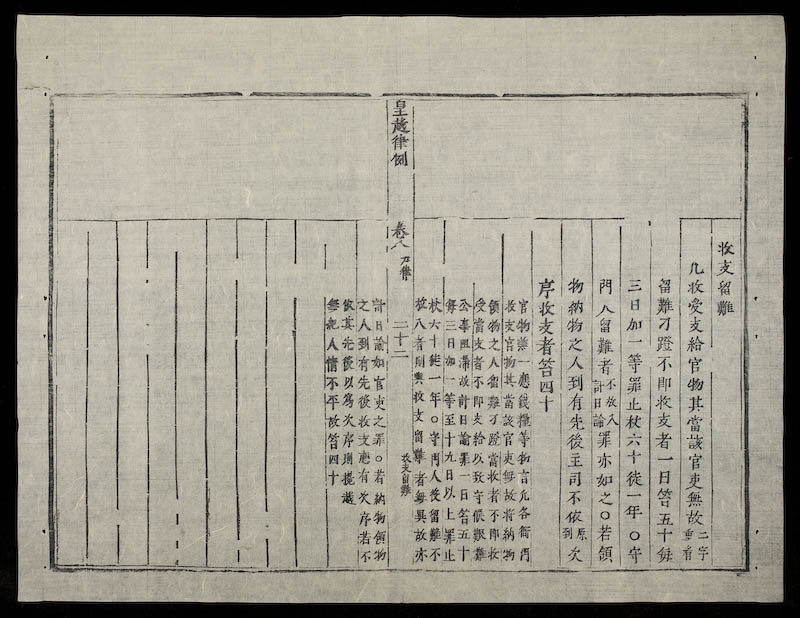 收支留難
凡收受支給官物其當該官吏無故二字重看
留難刁蹬不即收支者一日笞五十每
三日加一等罪止杖六十徒一年〇守
門人留難者不放入計日論罪亦如之〇若領
物納物之人到有先後主司不依原到次
序收支者笞四十
官物兼一應錢糧等物言凡各衙門
收支官物其當該官吏無故將納物
領物之人留難刁蹬當收者不即收
受當支者不即支給以致守候艱難
公事阻滯故計日論罪一日笞五十
每三日加一等至十九日以上罪止
杖六十徒一年〇守門人役留難不
放入者則與收支留難者無異故亦
皇越律例
卷八
二十二
收支留難
計日論如官吏之罪〇若納物領物
之人到有先後收支應有次序若不
依其先後以為次序則攙越
無紀人情不平故笞四十